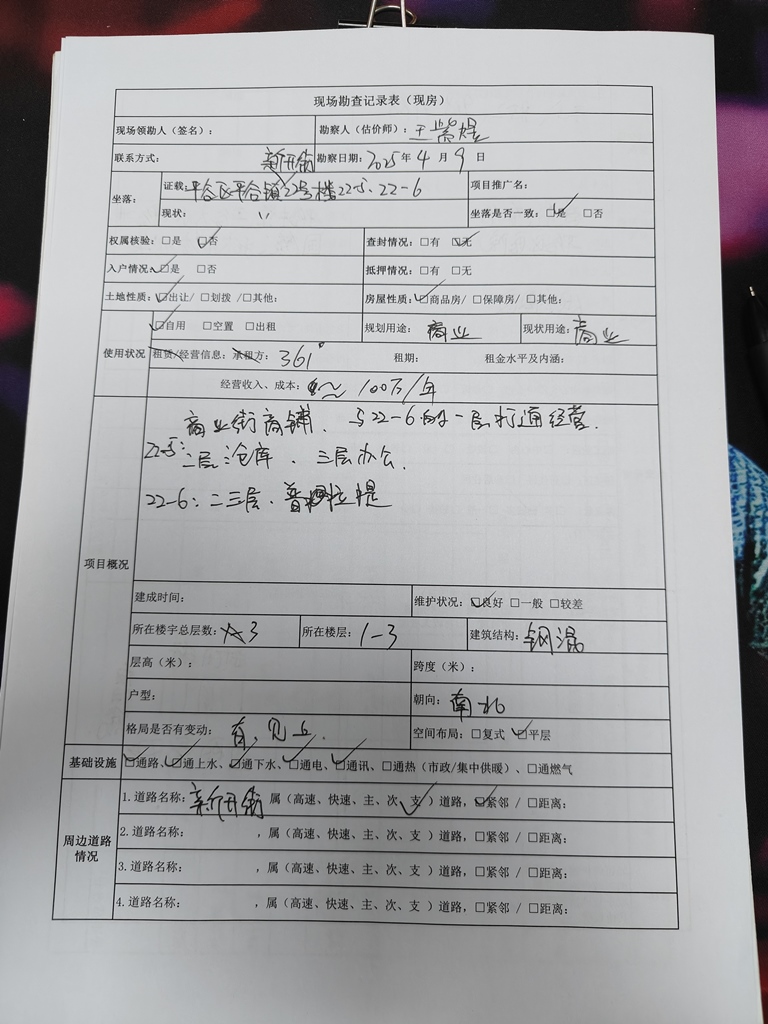 现场勘查记录表（现房）
现场领勘人（签名）： 勘察人（估价师）：王紫煜
联系方式： 勘察日期：2025年4月9日
新开街
坐落： 证载：平谷区平谷镇22号楼22-5、22-6 项目推广名：
现状： 〃 坐落是否一致：☑是 □否
权属核验：□是 ☑否 查封情况：□有 ☑无
入户情况：☑是 □否 抵押情况：□有 □无
土地性质：☑出让/ □划拨 / □其他： 房屋性质：☑商品房/ □保障房/ □其他：
使用状况 ☑自用 □空置 □出租 规划用途：商业 现状用途：商业
租赁/经营信息：承租方：361° 租期： 租金水平及内涵：
经营收入、成本： 100万/年
项目概况
商业街商铺、与22-6的一层打通经营.
22-5：二层仓库、三层办公.
22-6：二三层、普拉提
建成时间： 维护状况：☑良好 □一般 □较差
所在楼宇总层数：3 所在楼层：1-3 建筑结构：钢混
层高（米）： 跨度（米）：
户型： 朝向：南北
格局是否有变动：有，见上. 空间布局：□复式 ☑平层
基础设施 ☑通路、☑通上水、☑通下水、☑通电、☑通讯、□通热（市政/集中供暖）、□通燃气
周边道路情况
1.道路名称：新开街 属（高速、快速、主、次、支✓）道路，☑紧邻 / □距离：
2.道路名称： ，属（高速、快速、主、次、支 ）道路，□紧邻 / □距离：
3.道路名称： ，属（高速、快速、主、次、支 ）道路，□紧邻 / □距离：
4.道路名称： ，属（高速、快速、主、次、支 ）道路，□紧邻 / □距离：